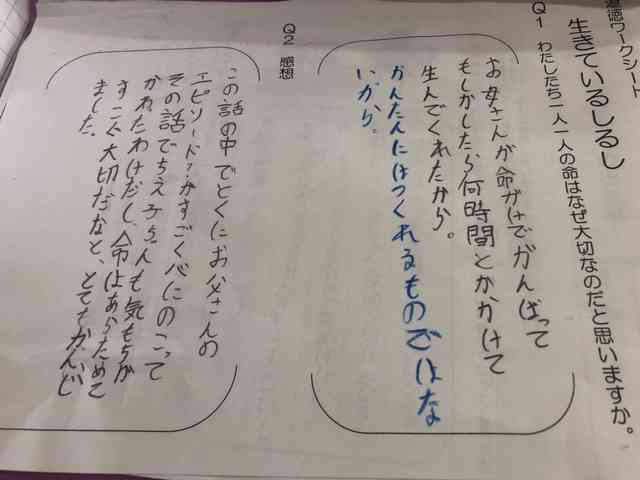 道徳ワークシート
生きているしるし
Q1 わたしたち一人一人の命はなぜ大切なのだと思いますか。
お母さんが命がけでがんばって
もしかしたら何時間とかかけて
生んでくれたから。
かんたんにはつくれるものではな
いから。
Q2 感想
この話の中でとくにお父さんの
エピソード?がすごく心にのこって
その話でちえ子さんも気もちが
かれたわけだし、命はあらためて
すごく大切だなと、とてもかんじ
ました。